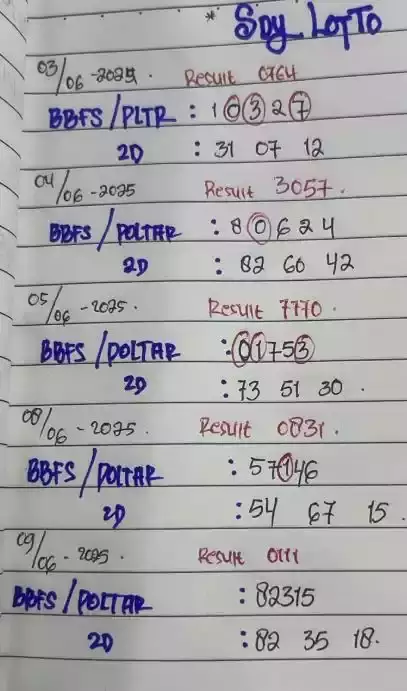 * Spy LoTTo
03/06-2025. Result 0764
BBFS/PLTR : 10327
2D : 31 07 12
04/06-2025 Result 3057.
BBFS/POLTAR : 80624
2D : 82 60 42
05/06-2025. Result 7770.
BBFS/POLTAR : 01753
2D : 73 51 30.
08/06-2025. Result 0831.
BBFS/POLTAR : 57146
2D : 54 67 15.
09/06-2025. Result 0111
BBFS/POLTAR : 82315
2D : 82 35 18.